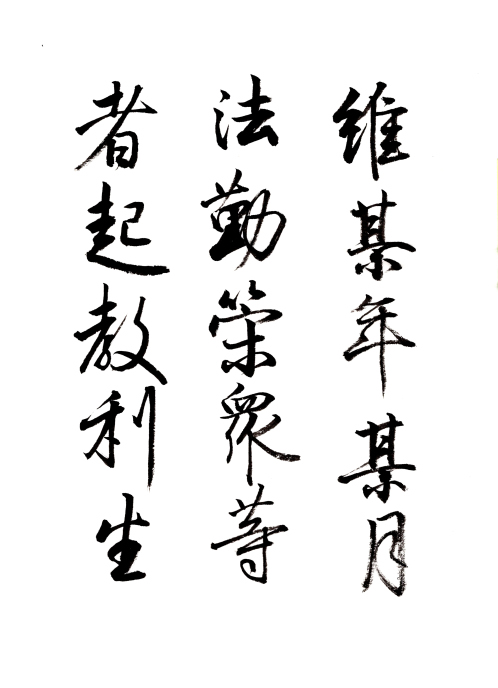 維某年某月
法勤策眾等
者起教利生